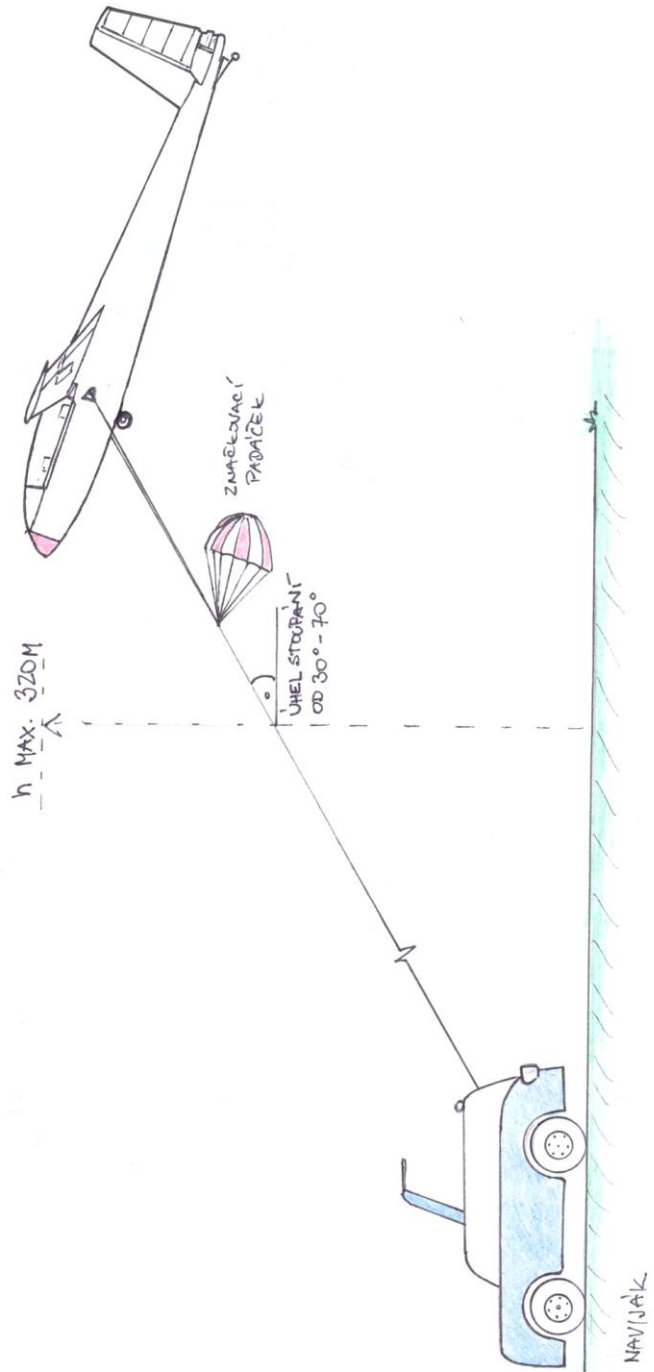 h MAX. 320M
ZNAČKOVACÍ
PADÁČEK
ÚHEL STOUPÁNÍ
OD 30° - 70°
NAVIJÁK